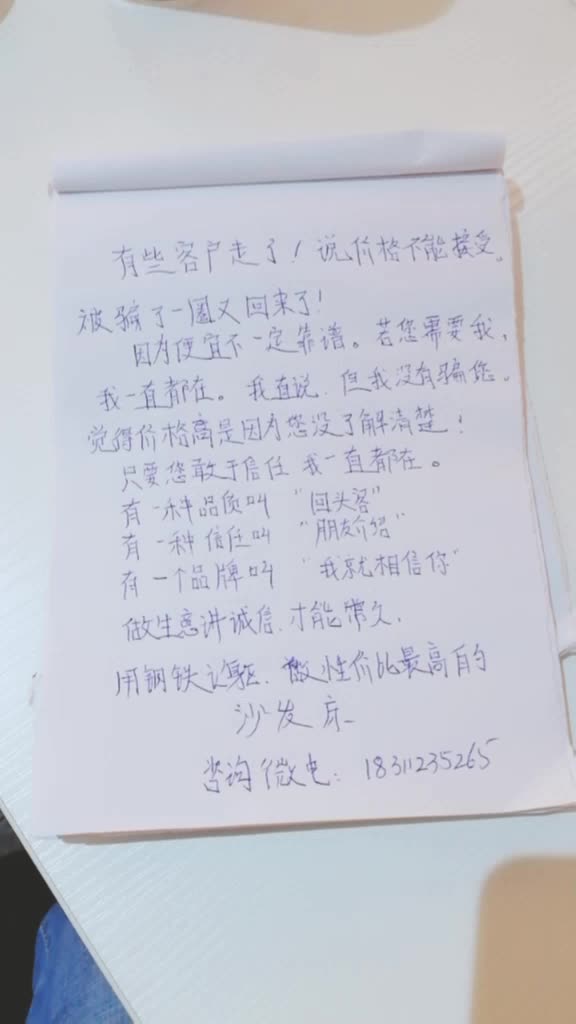 有些客户走了！说价格不能接受。
被骗了一圈又回来了！
因为便宜不一定靠谱。若您需要我，
我一直都在。我直说，但我没有骗您。
觉得价格高是因为您没了解清楚！
只要您敢于信任 我一直都在。
有一种品质叫 "回头客"
有一种信任叫 "朋友介绍"
有一个品牌叫 "我就相信你"
做生意讲诚信，才能常久，
用钢铁之躯、做性价比最高的
沙发床
咨询微电：18311235265